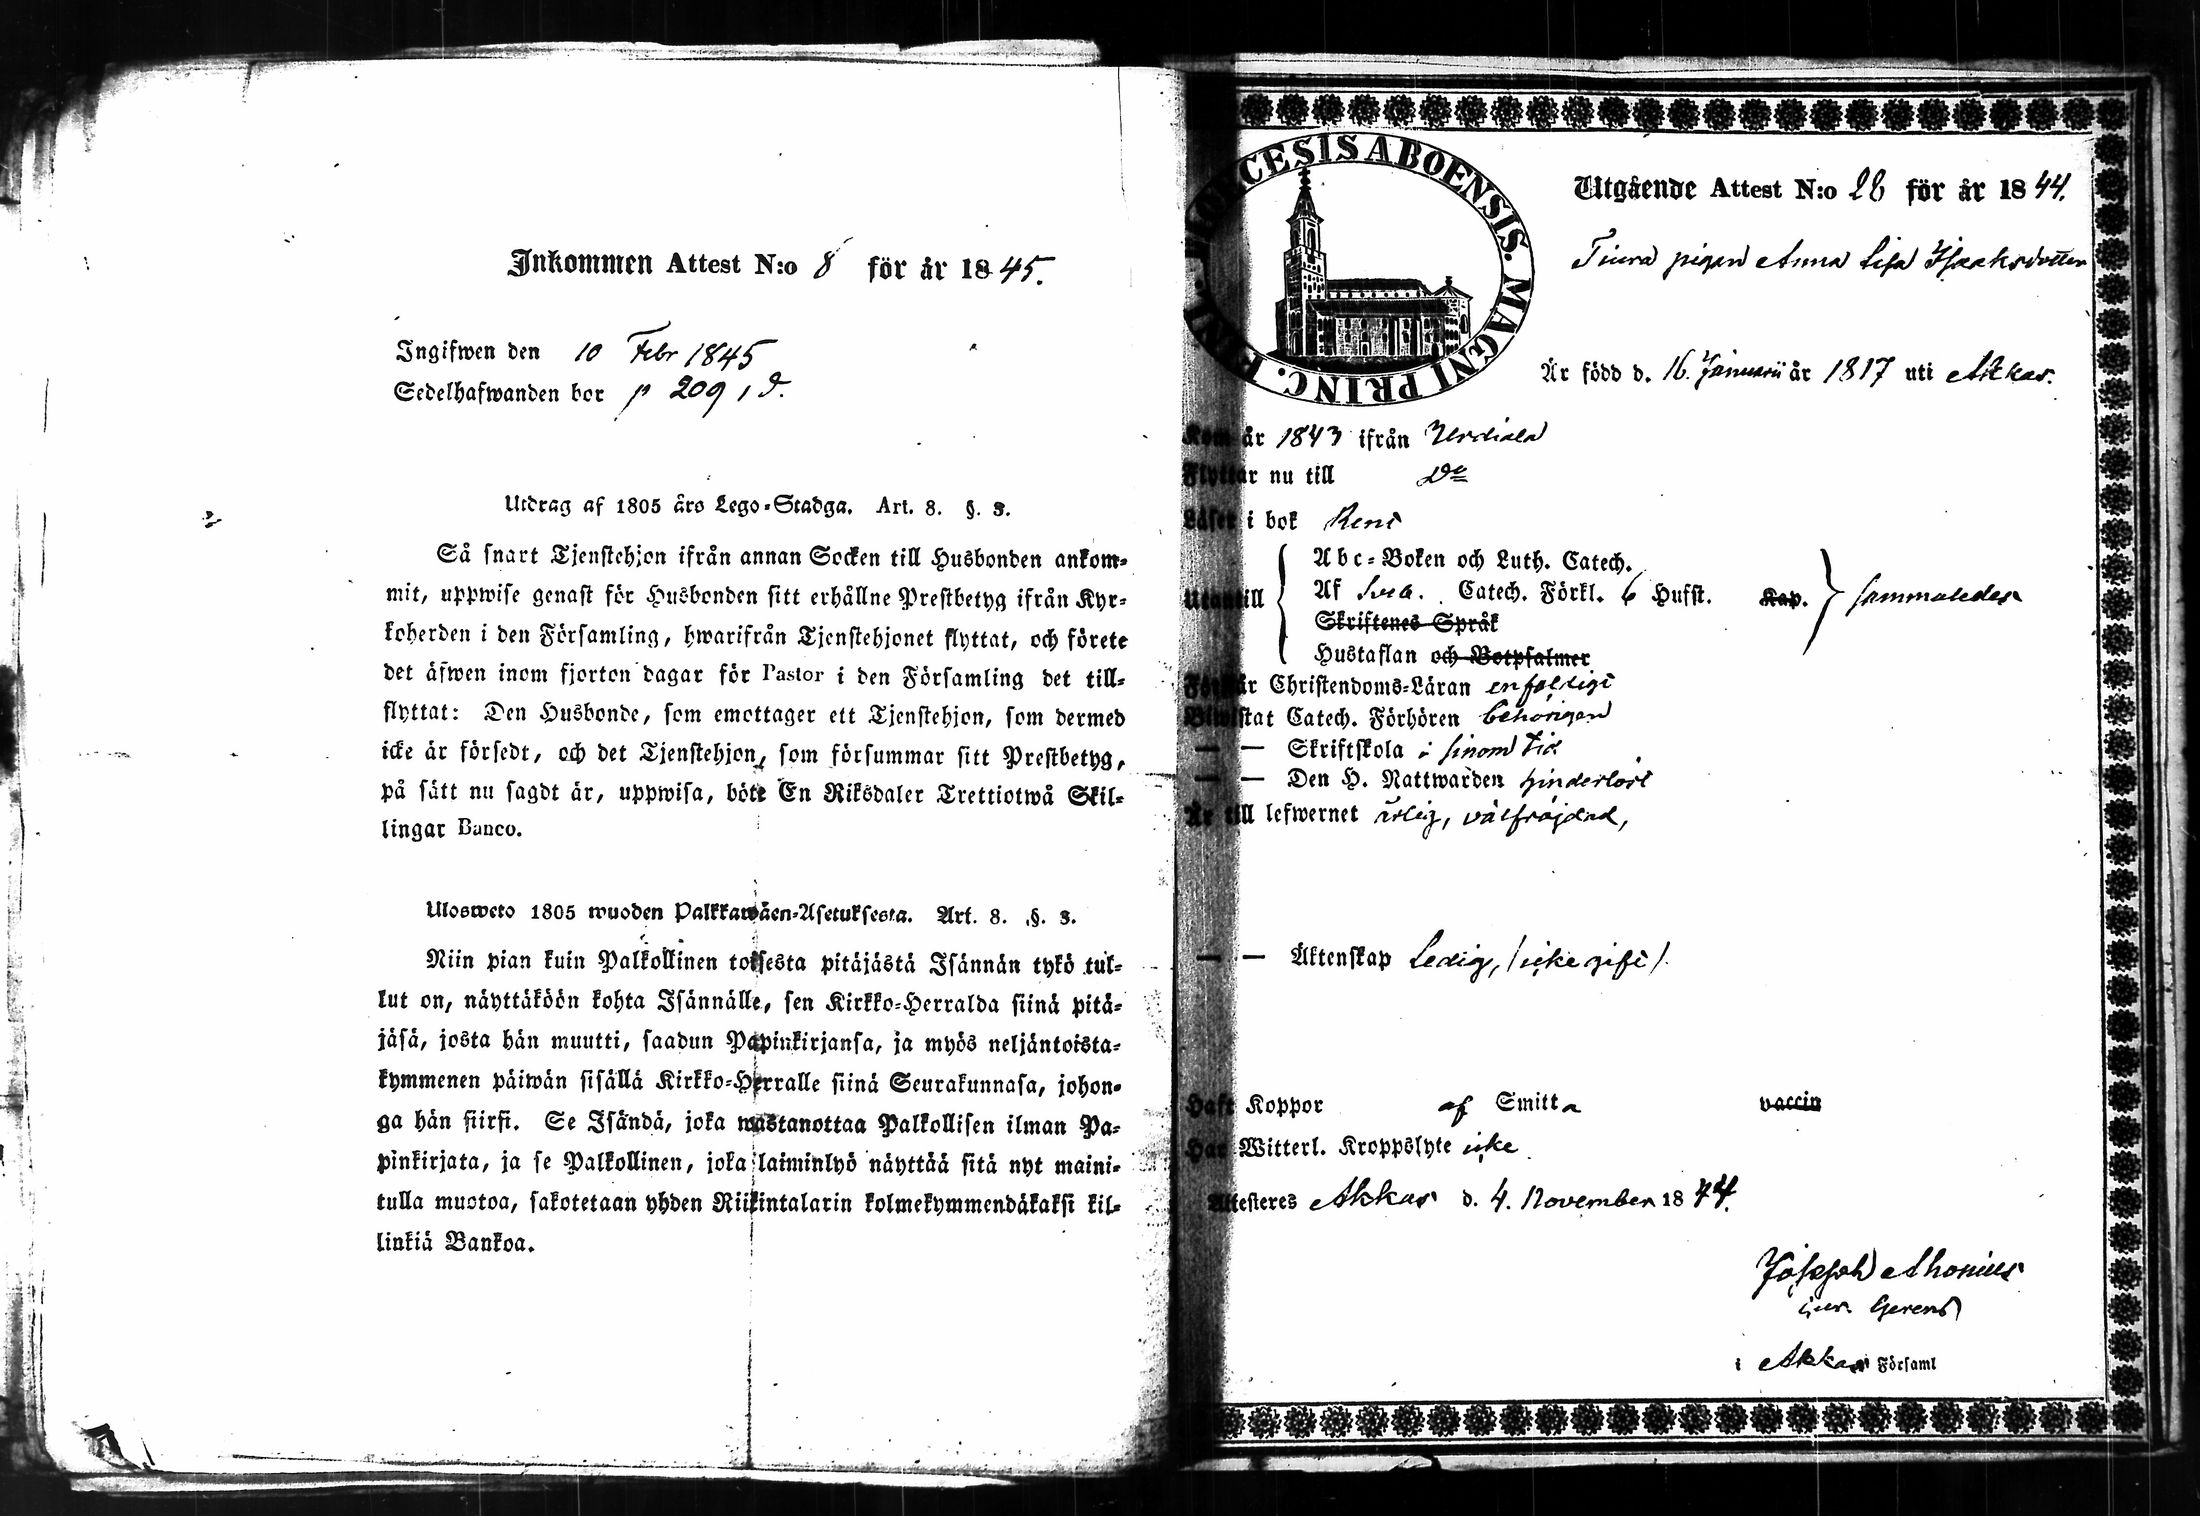 Inkommen Attest N:o 8 för år 1845.
Ingifwen den 10 Febr 1845
Sedelhafwanden bor p 209, d.
Utdrag af 1805 års Lego-Stadga. Art. 8. §. 3.
Så snart Tjenstehjon ifrån annan Socken till Husbonden ankom-
mit, uppwise genast för Husbonden sitt erhållne Prestbetyg ifrån Kyr-
koherden i den Församling, hwarifrån Tjenstehjonet flyttat, och förete
det äfwen inom fjorton dagar för Pastor i den Församling det till-
flyttat: Den Husbonde, som emottager ett Tjenstehjon, som dermed
icke är försedt, och det Tjenstehjon, som försummar sitt Prestbetyg,
på sätt nu sagdt är, uppwisa, böte En Riksdaler Trettiotwå Skil-
lingar Banco.
Ulosweto 1805 wuoden Palkkawäen-Asetuksesta. Art. 8. §. 3.
Niin pian kuin Palkollinen toisesta pitäjästä Isännän tykö tul-
lut on, näyttäköön kohta Isännälle, sen Kirkko-Herralda siinä pitä-
jäsä, josta hän muutti, saadun Papinkirjansa, ja myös neljäntoista-
kymmenen päiwän sisällä Kirkko-Herralle siinä Seurakunnasa, johon-
ga hän siirsi. Se Isändä, joka wastanottaa Palkollisen ilman Pa-
pinkirjata, ja se Palkollinen, joka laiminlyö näyttää sitä nyt maini-
tulla muotoa, sakotetaan yhden Riikintalarin kolmekymmendäkaksi kil-
linkiä Bankoa.
DIOECESIS ABOENSIS. MAGNI PRINC. FINL.
Utgående Attest N:o 28 för år 1844.
pigan Anna Lisa Isaksdotter
Är född d. 16. Januarii år 1817 uti Akkas.
Kom år 1843 ifrån Urdiala
Flyttar nu till Do
Läser i bok Rent
Abc-Boken och Luth. Catech.
Utantill Af Sveb. Catech. Förkl. 6 Hufst. Kap. sammaledes
Skriftenes Språk
Hustaflan och Botpsalmer
Förstår Christendoms-Läran enfaldigt
Biwistat Catech. Förhören behörigen
— — Skriftskola i sinom tid
— — Den H. Nattwarden hinderlöst
Är till lefwernet ärlig, välfräjdad,
— — Äktenskap Ledig, /icke gift/.
Haft Koppor af Smitta vaccin
Har Witterl. Kroppslyte icke
Attesteres Akkas d. 4. November 1844.
Joseph
Gerens
i Akkas Församl